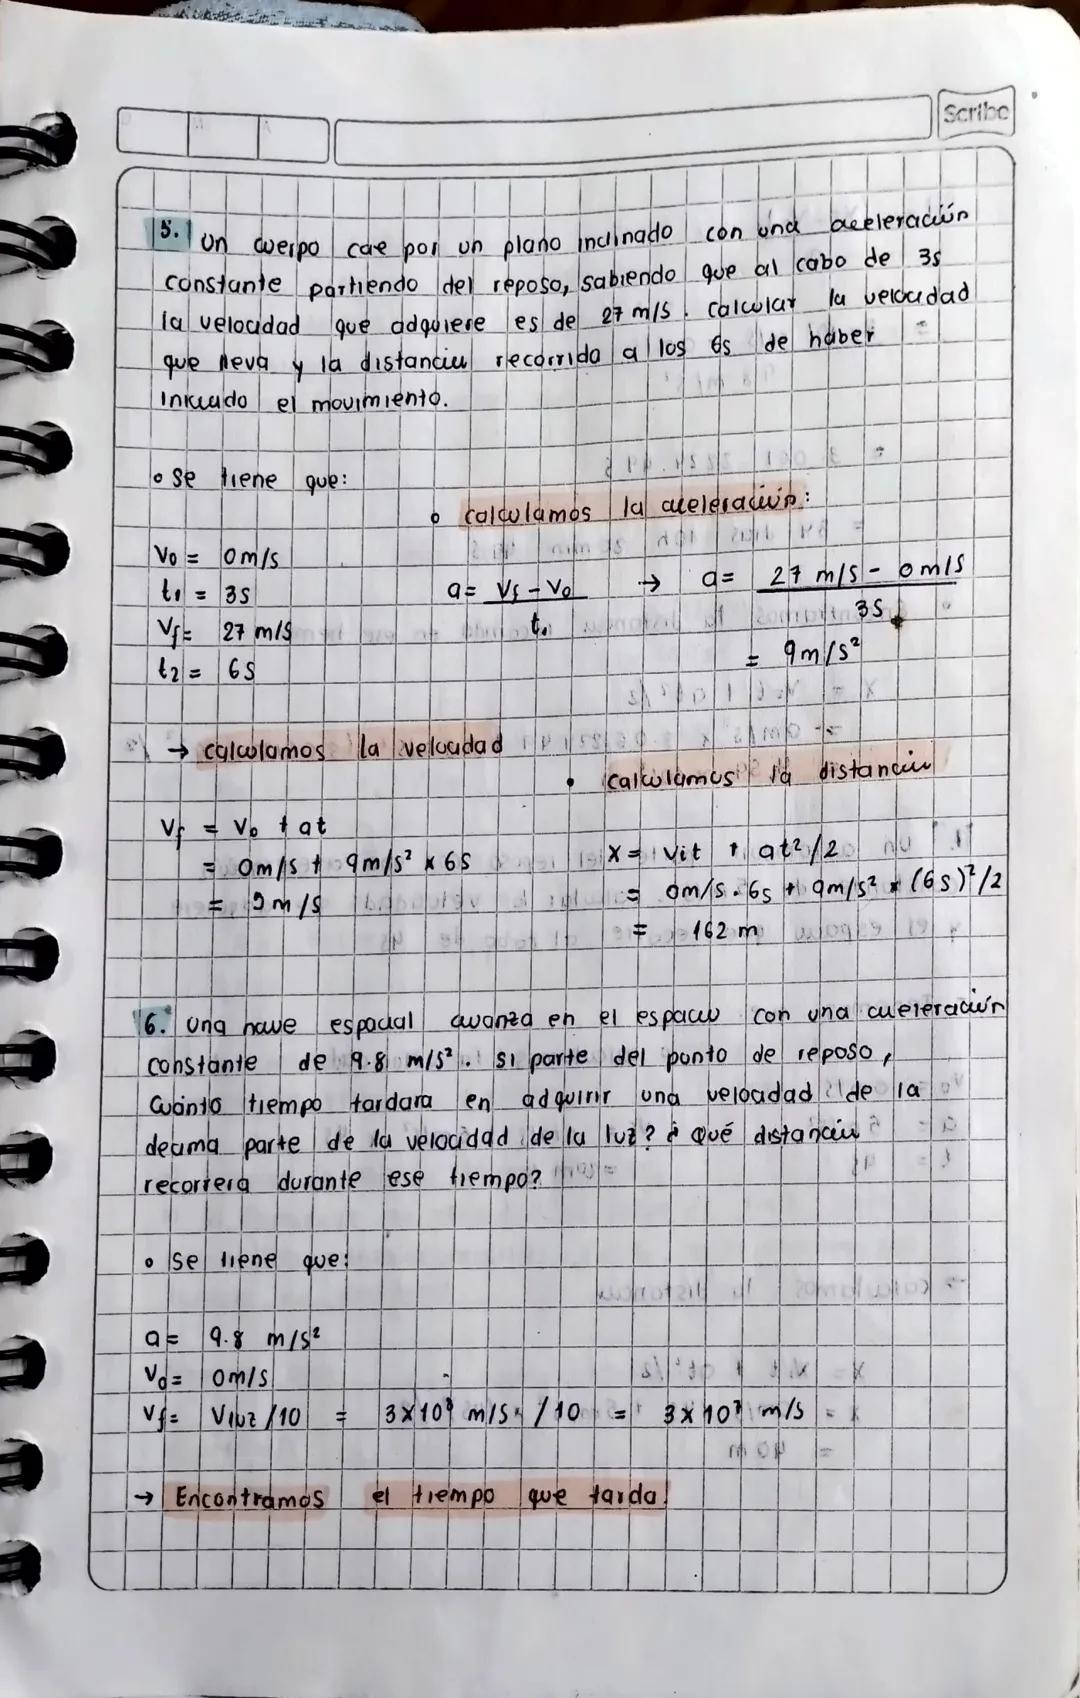 Scribe
5. Un cuerpo cae por un plano inclinado con una aceleración
constante partiendo del reposo, sabiendo que al cabo de 3s
la velocidad que adquiere es de 27 m/s. Calcular la velocidad
que lleva y la distancia recorrida a los 6s de haber
iniciado el movimiento.
• Se tiene que:
• calculamos la aceleración:
V₀ = 0m/s
t₁ = 3s
Vf = 27 m/s
t₂ = 6s
a = Vf - V₀ / t. → a = 27 m/s - 0m/s / 3s
= 9m/s²
→ calculamos la velocidad
• calculamos la distancia
Vf = V₀ + at
= 0m/s + 9m/s² x 6s
= 9m/s
X = Vit + at²/2
= 0m/s . 6s + 9m/s² * (6s)²/2
= 162 m
6. Una nave espacial avanza en el espacio con una aceleración
constante de 9.8 m/s². si parte del punto de reposo,
cuánto tiempo tardara en adquirir una velocidad de la
decima parte de la velocidad de la luz? ¿ Qué distancia
recorrera durante ese tiempo?
• Se tiene que:
a = 9.8 m/s²
V₀ = 0m/s
Vf = Vluz /10 = 3x10⁸ m/s /10 = 3x10⁷ m/s
→ Encontramos el tiempo que tarda